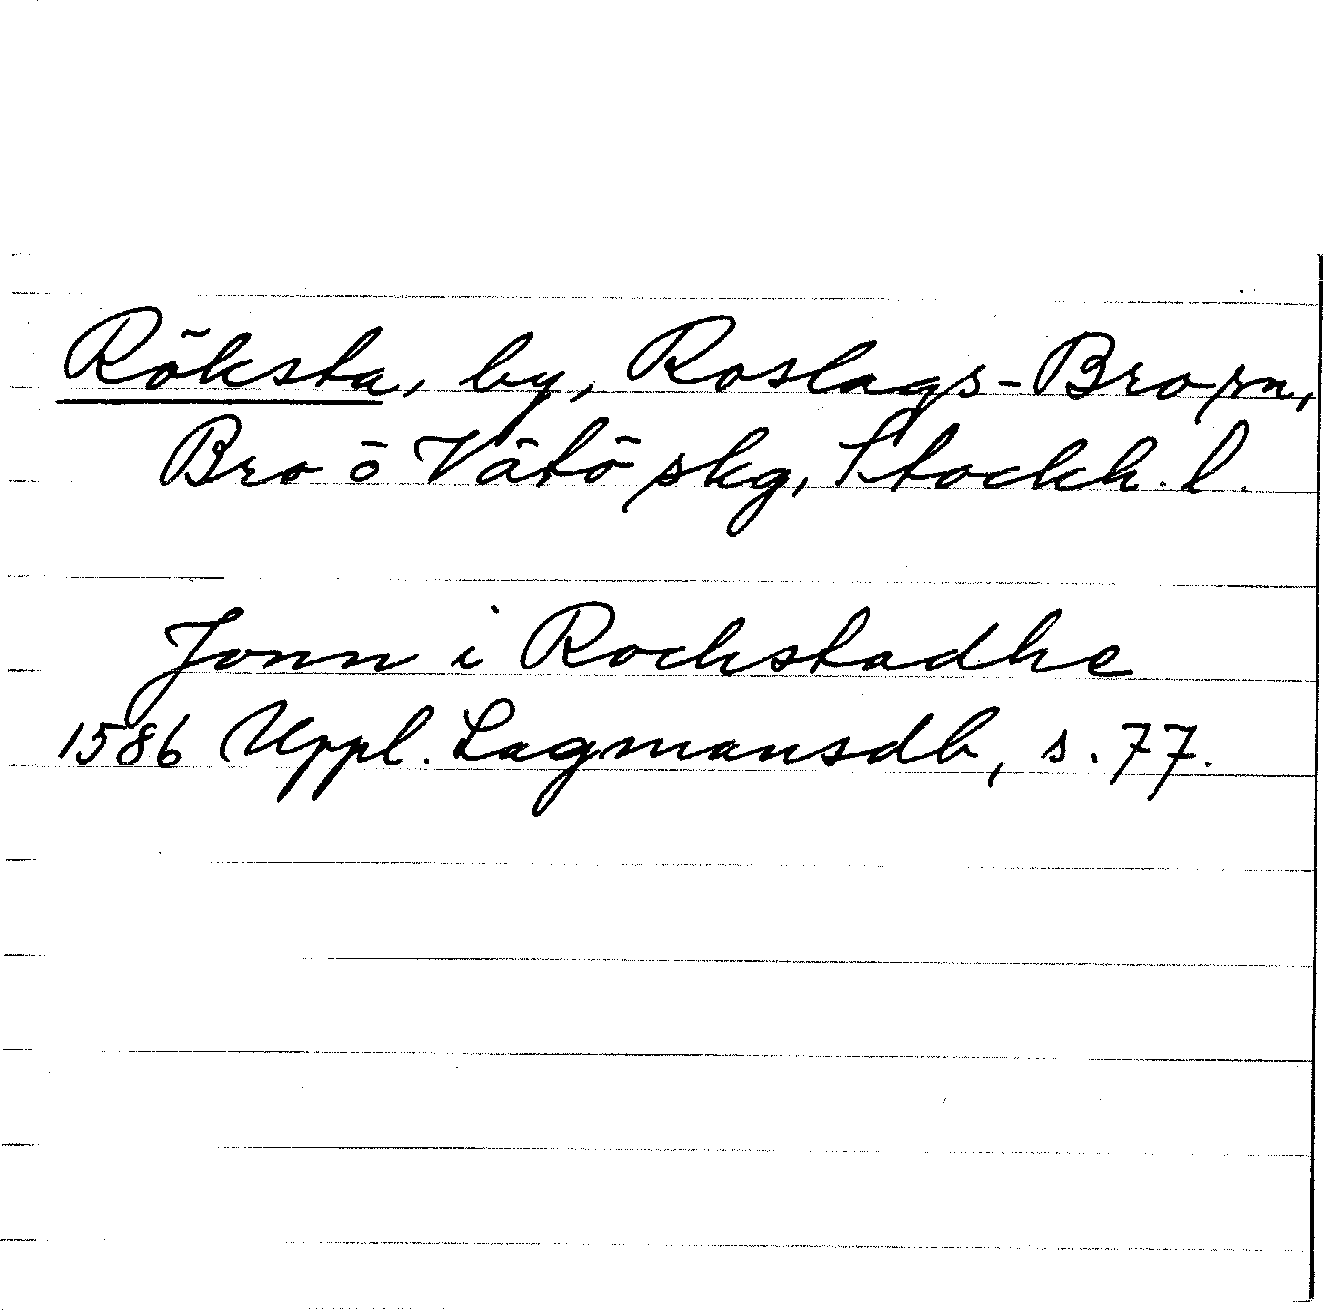 Röksta, by, Roslags-Bro sn,
Bro o Vätö skg, Stockh. l.
Jonn i Rockstadhe
1586 Uppl. Lagmansdb, s. 77.